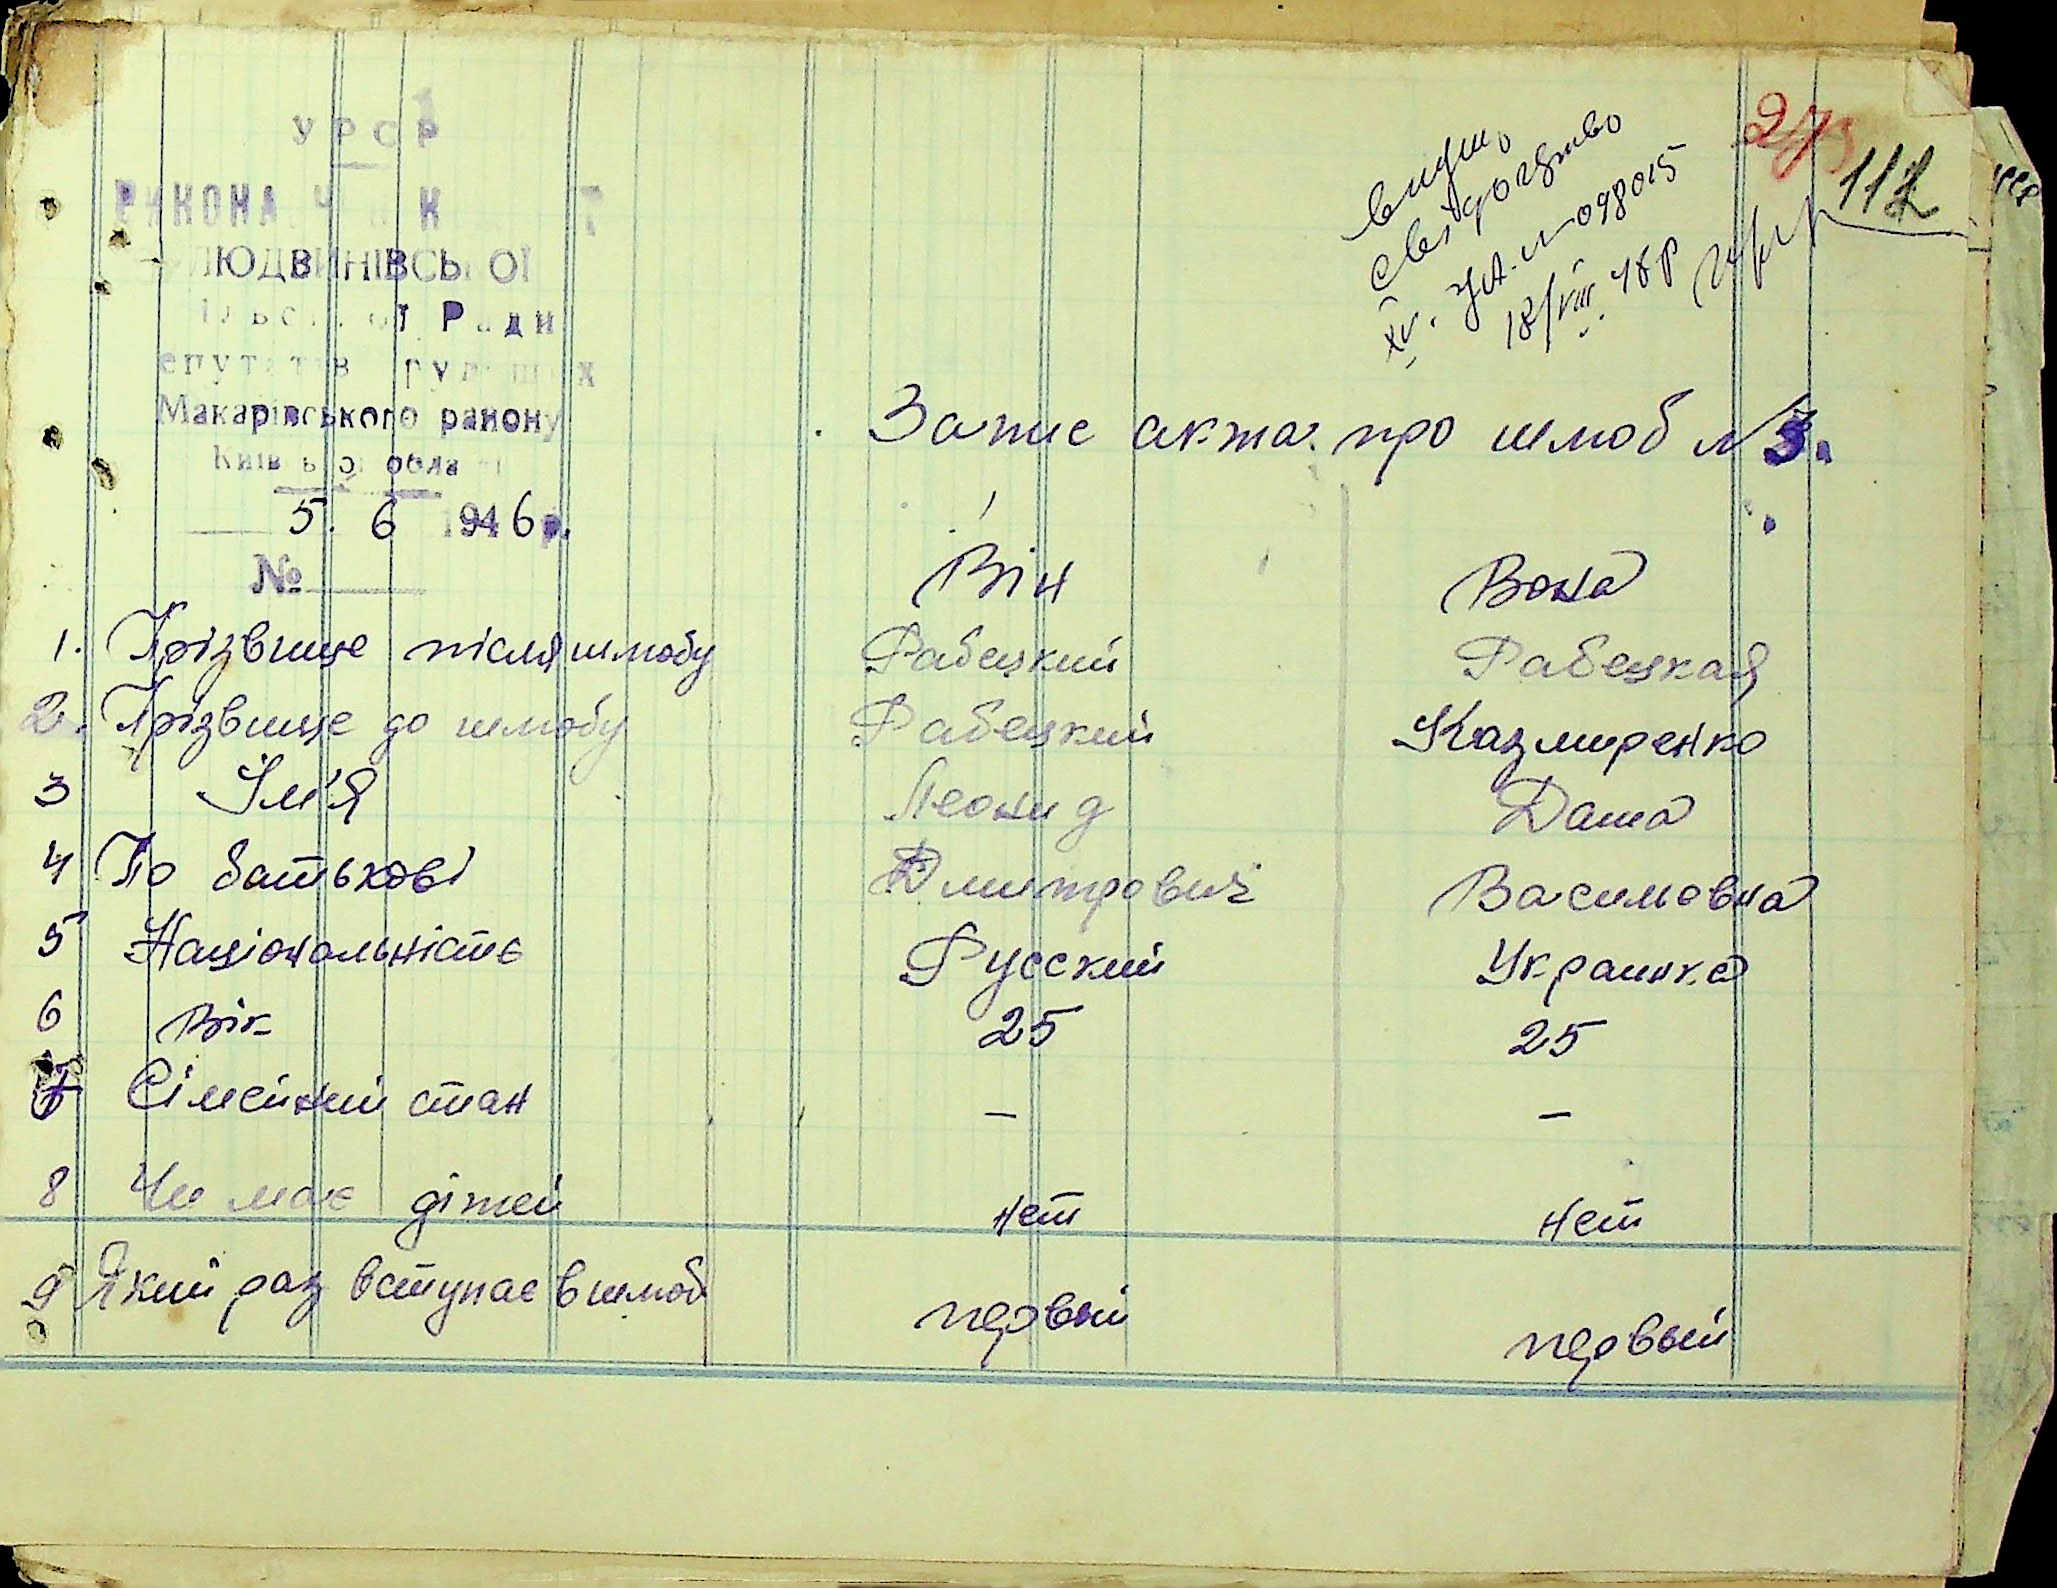 УРСР
ЛЮДВИНІВСЬКОЇ
Ради
Макарівського району
5. 6 1946 р.
№
видано
свідоцтво
№ 098015
18/VIII 48 р
112
Запис акта про шлюб № 3.
Він Вона
1. Прізвище після шлюбу Рабецкий Рабецкая
2. Прізвище до шлюбу Рабецкий Казмиренко
3 Ім'я Леонид Даша
4 По батькові Дмитрович Василовна
5 Національність Русский Украинка
6 Вік 25 25
7 Сімейний стан – –
8 Чи має дітей нет нет
9 Який раз вступає в шлюб первый первый